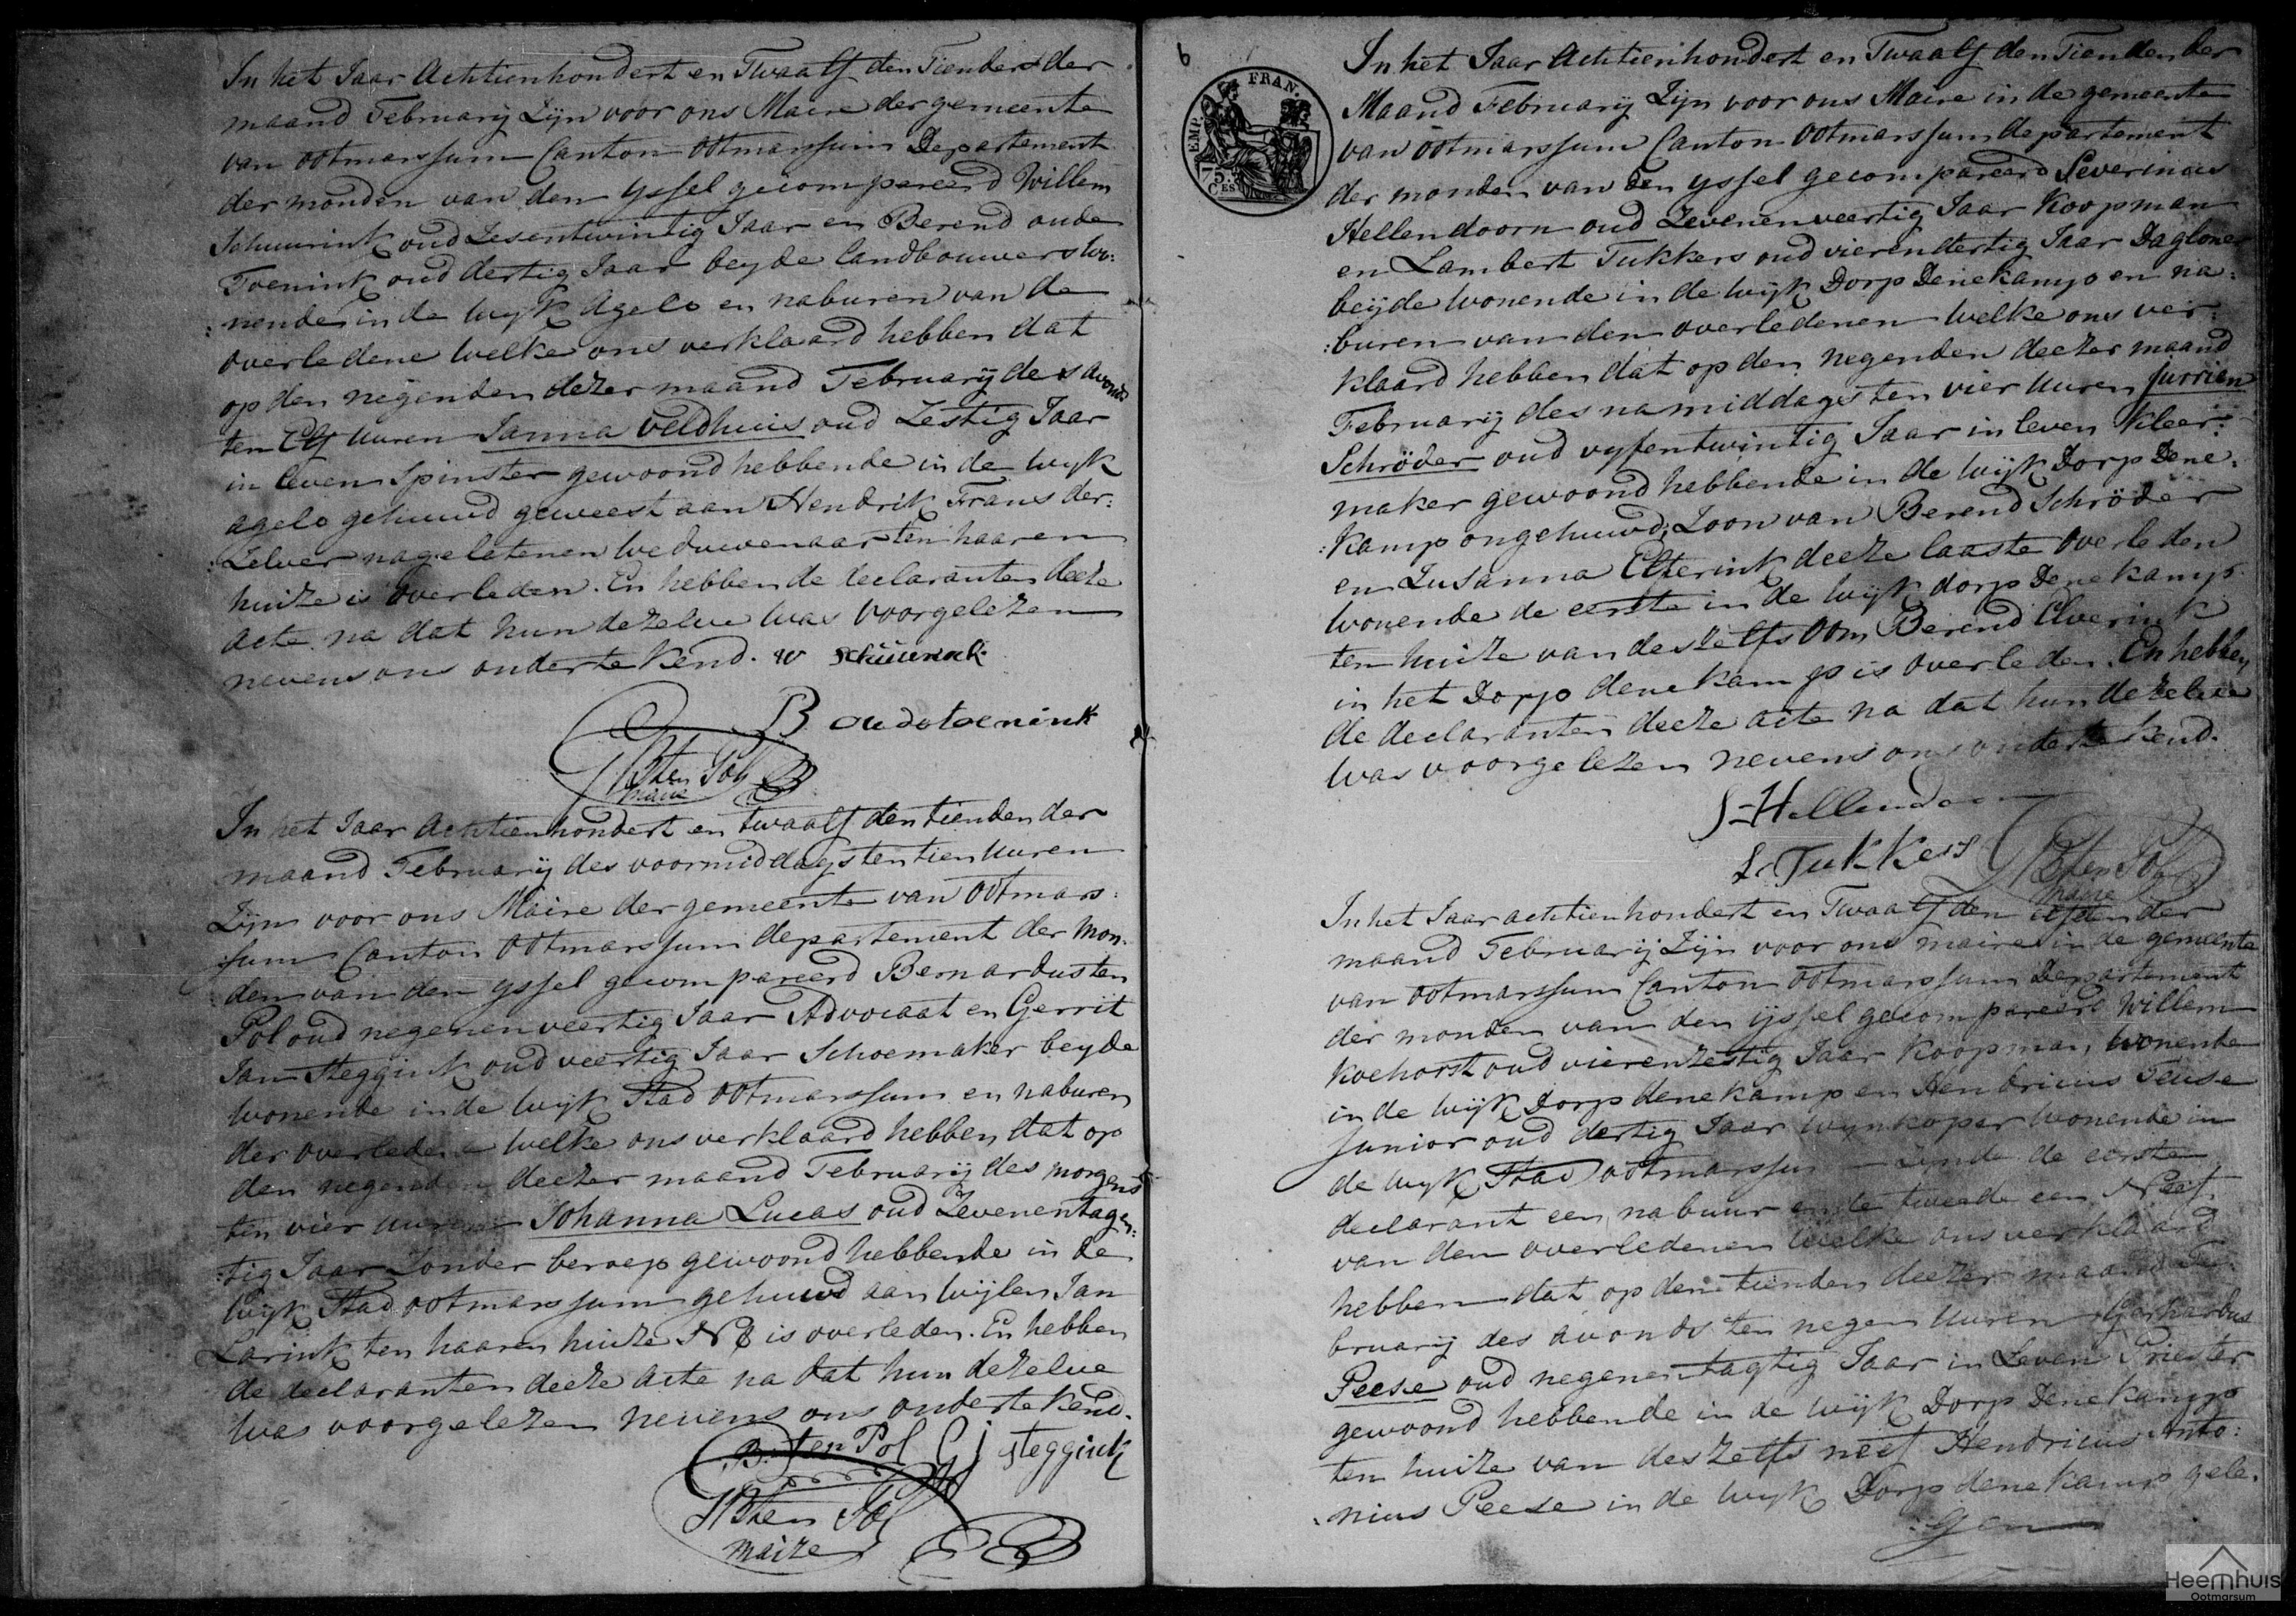 In het Jaar Achtienhondert en Twaalf den Tienden der
maand February Zijn voor ons Maire der gemeente
van ootmarssum Canton ootmarssum Departement
der monden van den yssel gecompareerd Willem
Schuurink oud Zesentwintig Jaar en Berend oude
Toenink oud dertig Jaar beyde landbouwers wo:
:nende in de wyk Agelo en naburen van de
overledene welke ons verklaard hebben dat
op den negenden dezer maand February des avonds
ten Elf uuren Janna Veldhuis oud Zestig Jaar
in leven Spinster gewoond hebbende in de wyk
agelo gehuwd geweest aan Hendrik Frans der:
:Zelver nageletenen weduwenaar ten haaren
huize is overleden. En hebben de declaranten deeze
acte na dat hun dezelve was voorgelezen
nevens ons onderteekend. w Schuurink
B oudetoenink
ten Pol
maire
In het Jaar Achtienhondert en twaalf den tienden der
maand February des voormiddags ten tien uuren
Zijn voor ons Maire der gemeente van ootmars:
:sum Canton ootmarssum departement der Mon:
:den van den yssel gecompareerd Bernardus ten
Pol oud negenenveertig Jaar Advocaat en Gerrit
Jan Steggink oud veertig Jaar Schoemaker beyde
wonende in de wyk Stad ootmarssum en naburen
der overledene welke ons verklaard hebben dat op
den negenden deezer maand February des morgens
ten vier uuren Johanna Lucas oud Zevenentagen:
:tig Jaar Zonder beroep gewoond hebbende in de
wijk Stad ootmarssum gehuwd aan wijlen Jan
Larink ten haaren huize No is overleden. En hebben
de declaranten deeze acte na dat hun dezelve
was voorgelezen nevens ons onderteekend.
B. ten Pol GJ steggink
ten Pol
maire
6
EMP. FRAN.
75.
CES
In het Jaar Achtienhondert en Twaalf den Tienden der
Maand February Zijn voor ons Maire in de gemeente
van ootmarssum Canton ootmarssum departement
der monden van den yssel gecompareerd Severinus
Hellendoorn oud Zevenenveertig Jaar Koopman
en Lambert Tukkers oud vierendertig Jaar Dagloner
beijde wonende in de wijk Dorp Denekamp en na:
:buren van den overledenen welke ons ver:
klaard hebben dat op den negenden deezer maand
February des namiddags ten vier uuren Jurrien
Schröder oud vyfentwintig Jaar in leven Kleer:
maker gewoond hebbende in de wijk Dorp Dene:
:kamp ongehuwd, Zoon van Berend Schröder
en Zusanna Elferink deeze laaste overleden
wonende de eerste in de wijk dorp Denekamp
ten huize van deszelfs Oom Berend Elverink
in het Dorp denekamp is overleden. En hebben
de declaranten deeze acte na dat hun dezelve
was voorgelezen nevens ons onderteekend.
S-Hellendoorn
L. Tukkers
ten Pol
maire
In het Jaar achtienhondert en Twaalf den elfden der
maand February Zijn voor ons maire in de gemeente
van ootmarssum Canton ootmarssum Departement
der monden van den ijssel gecompareerd Willem
Koehorst oud vierenzestig Jaar Koopman, wonende
in de wijk Dorp denekamp en Hendricus Teuse
Junior oud dertig Jaar wynkoper wonende in
de wyk Stad ootmarssum Zynde de eerste
declarant een nabuur en de tweede een Neef
van den overledenen welke ons verklaard
hebben dat op den tienden deezer maand Fe:
bruarij des avonds ten negen uuren Gerhardus
Peese oud negenentagtig Jaar in Leven Priester
gewoond hebbende in de wijk Dorp Denekamp
ten huize van deszelfs neef Hendricus Anto:
:nius Peese in de wyk Dorp denekamp gele:
:gen
Heemhuis
Ootmarsum